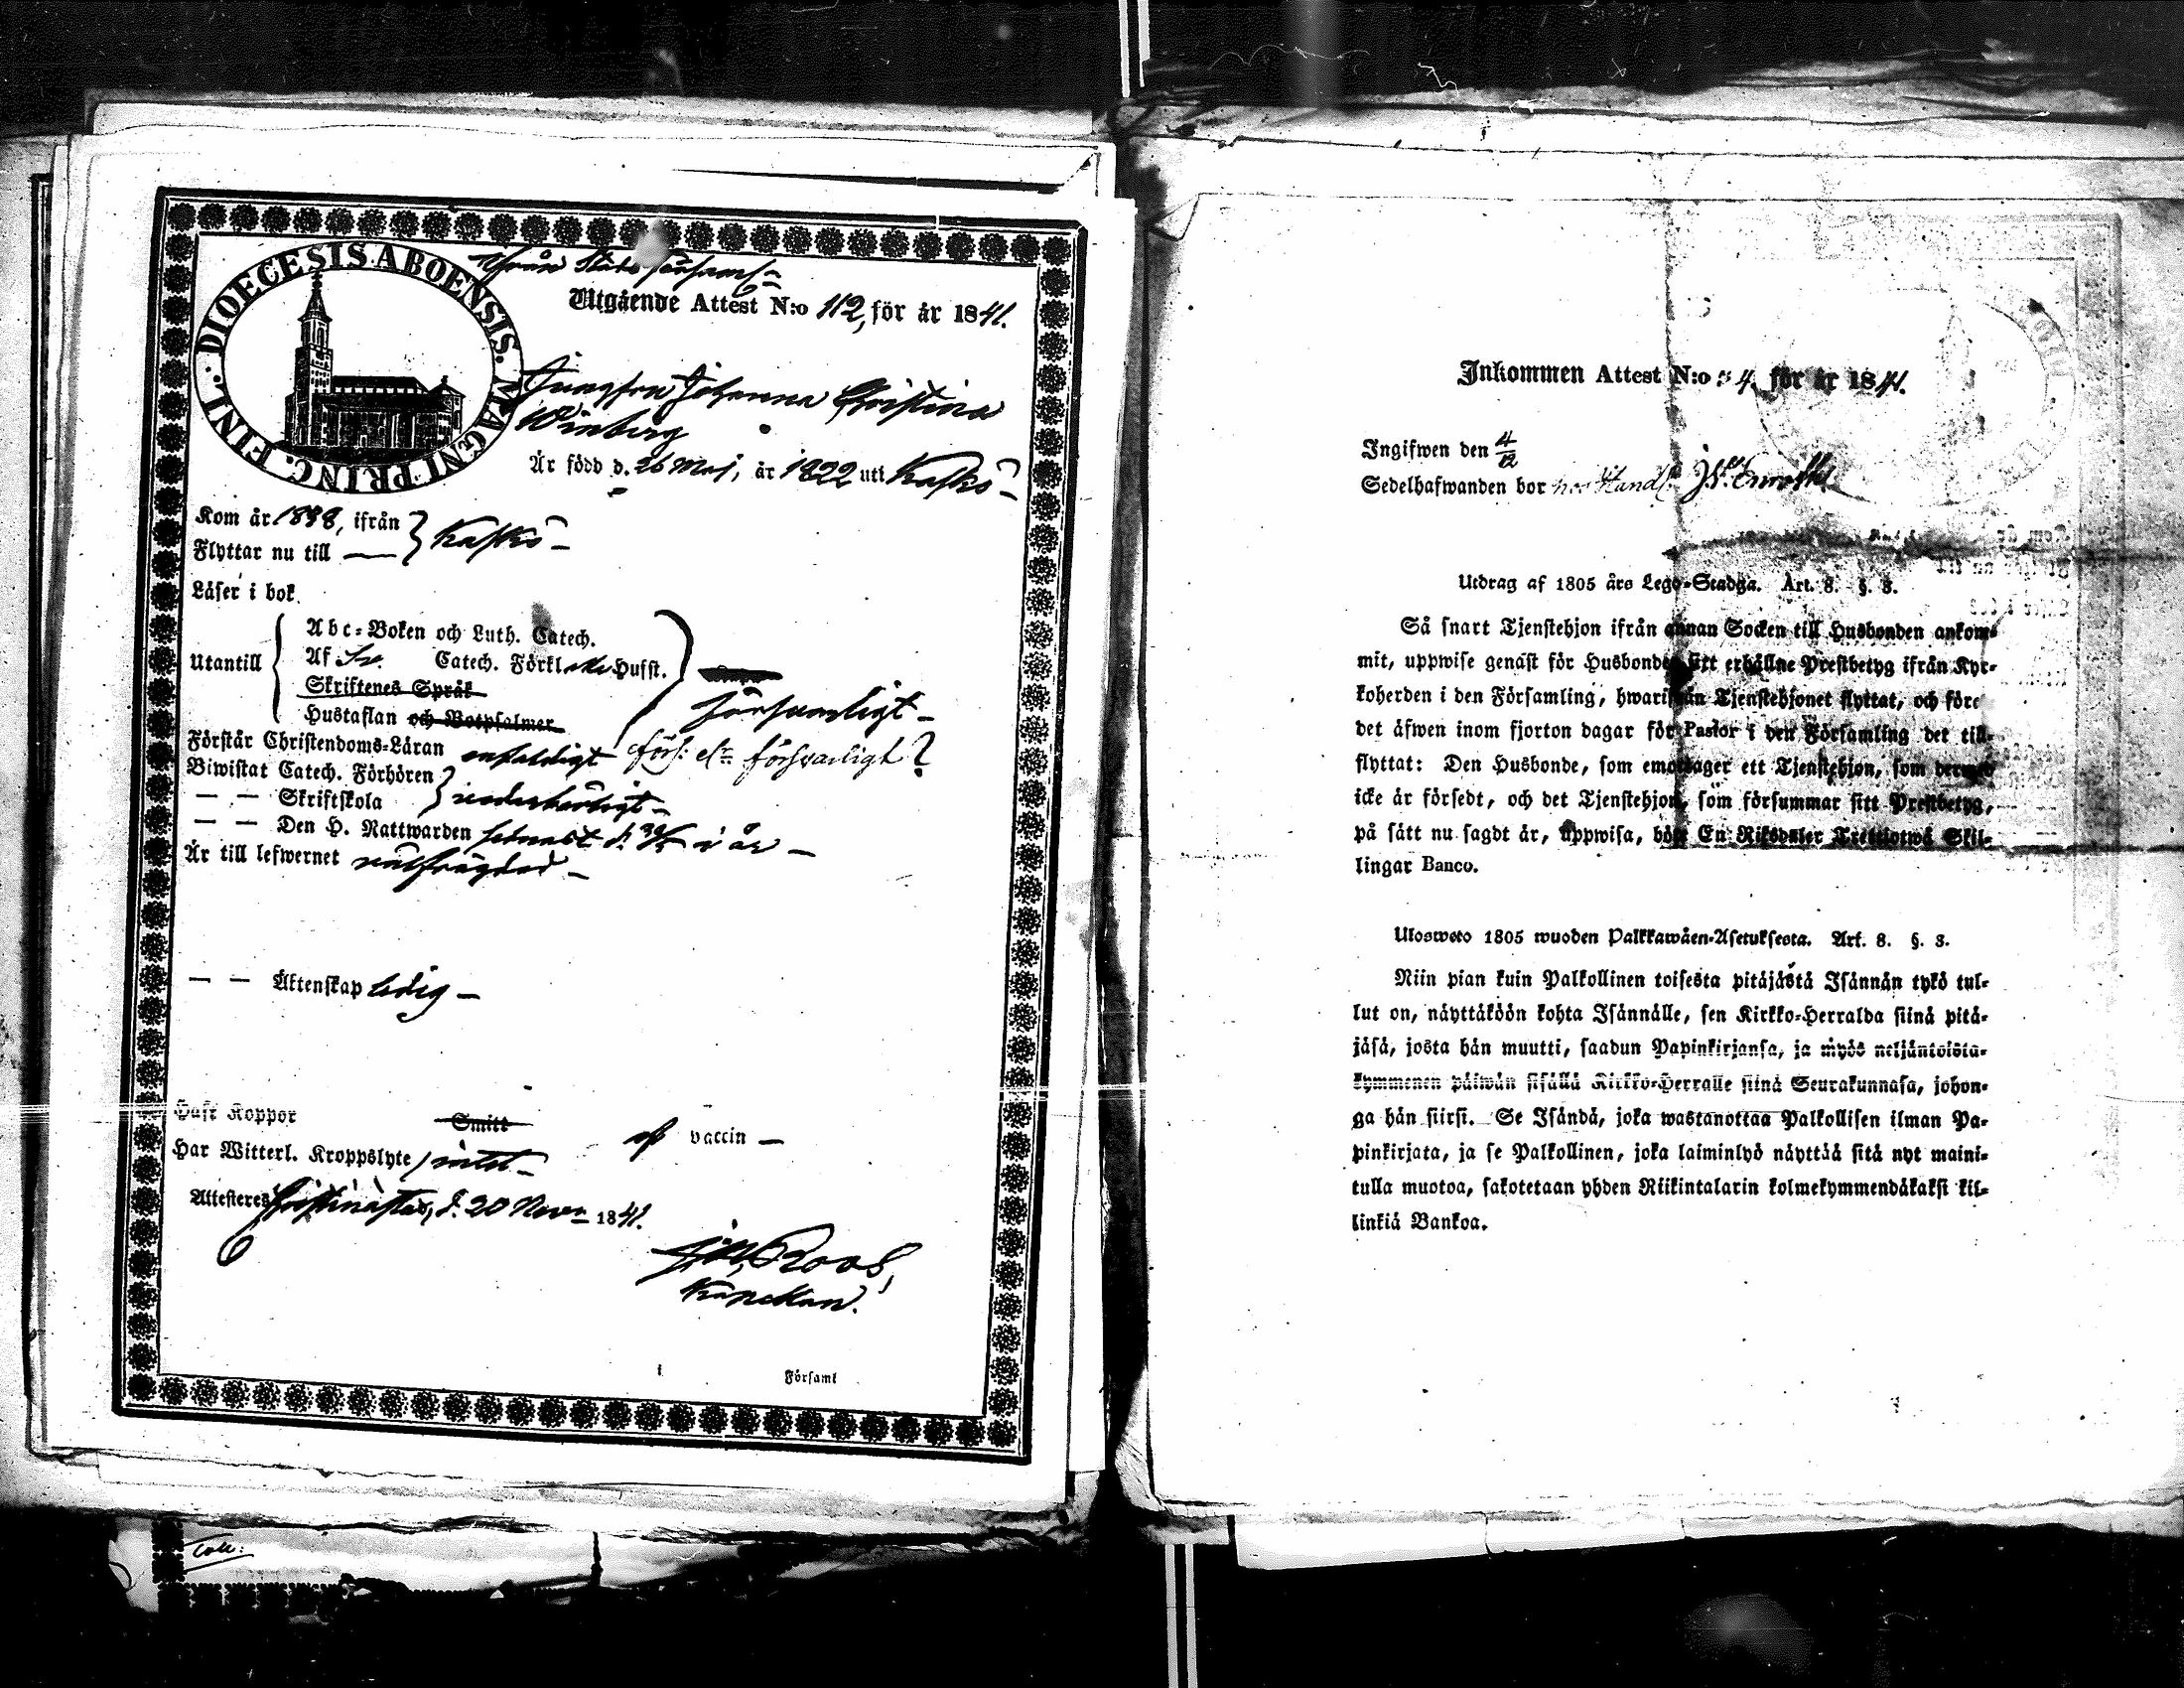 DIOECESIS ABOENSIS. MAGNI PRINC. FINL.
Ifrån Stads församl.
Utgående Attest N:o 112, för år 1841.
Jungfru Johanna Christina
Winberg
Är född d. 26 Maj, år 1822 uti Kaskö
Kom år 1838, ifrån } Kaskö
Flyttar nu till
Läser i bok
Utantill { Abc-Boken och Luth. Catech.
Af Sv. Catech. Förkl. Husst.
Skriftenes Språk
Hustaflan och Botpsalmer
försvarligt
Förstår Christendoms-Läran enfaldigt försvarligt?
Biwistat Catech. Förhören }
— — Skriftskola } vederbörligt
— — Den H. Nattwarden senast d. i år
Är till lefwernet välfrägdad
— — Äktenskap ledig
Haft Koppor Smitt af vaccin
Har Witterl. Kroppslyte intet
Attesteras Christinæstad, d. 20 Novem 1841.
Roos,
Församl
Coll:
Inkommen Attest N:o 54. för år 1841.
Ingifwen den 4/12
Sedelhafwanden bor hos Handl.
Utdrag af 1805 års Lego-Stadga. Art. 8. §. 3.
Så snart Tjenstehjon ifrån annan Socken till Husbonden ankom-
mit, uppwise genast för Husbonden sitt erhållne Prestbetyg ifrån Kyr-
koherden i den Församling, hwarifrån Tjenstehjonet flyttat, och före
det äfwen inom fjorton dagar för Pastor i den Församling det till-
flyttat: Den Husbonde, som emottager ett Tjenstehjon, som dermed
icke är försedt, och det Tjenstehjon, som försummar sitt Prestbetyg,
på sätt nu sagdt är, uppwisa, böte En Riksdaler Trettiotwå Skil-
lingar Banco.
Ulosweto 1805 wuoden Palkkawäen-Asetuksesta. Art. 8. §. 3.
Niin pian kuin Palkollinen toisesta pitäjästä Isännän tykö tul-
lut on, näyttäköön kohta Isännälle, sen Kirkko-Herralda siinä pitä-
jäsä, josta hän muutti, saadun Papinkirjansa, ja myös neljäntoista-
kymmenen päiwän sisällä Kirkko-Herralle siinä Seurakunnasa, johon-
ga hän siirsi. Se Isändä, joka wastanottaa Palkollisen ilman Pa-
pinkirjata, ja se Palkollinen, joka laiminlyö näyttää sitä nyt maini-
tulla muotoa, sakotetaan yhden Riikintalarin kolmekymmendäkaksi kil-
linkiä Bankoa.